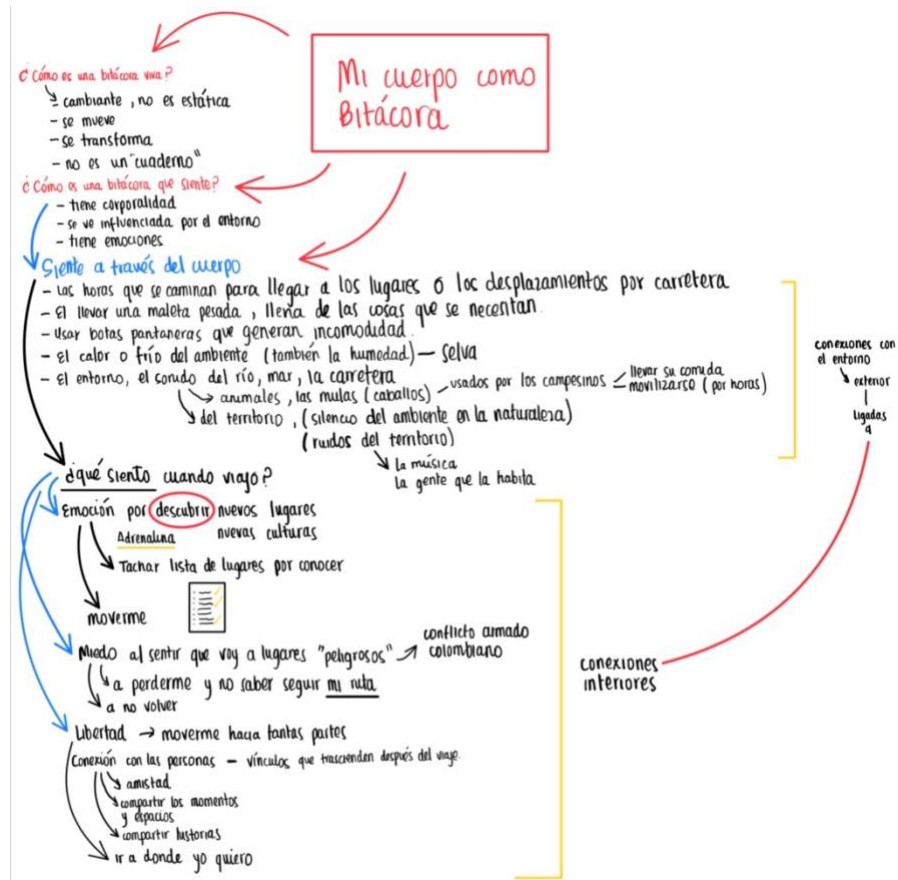 Mi cuerpo como
Bitácora
¿Cómo es una bitácora viva?
cambiante, no es estática
- se mueve
- se transforma
- no es un "cuaderno"
¿Cómo es una bitácora que siente?
- tiene corporalidad
- se ve influenciada por el entorno
- tiene emociones
Siente a través del cuerpo
- Las horas que se caminan para llegar a los lugares o los desplazamientos por carretera
- El llevar una maleta pesada, llena de las cosas que se necesitan.
- Usar botas pantaneras que generan incomodidad.
- El calor o frío del ambiente (también la humedad) — selva
- El entorno, el sonido del río, mar, la carretera
animales, las mulas (caballos) - usados por los campesinos
llevar su comida
movilizarse (por horas)
del territorio, (silencio del ambiente en la naturaleza)
(ruidos del territorio)
la música
la gente que la habita
conexiones con
el entorno
exterior
ligadas
a
¿qué siento cuando viajo?
Emoción por descubrir nuevos lugares
Adrenalina nuevas culturas
Tachar lista de lugares por conocer
moverme
Miedo al sentir que voy a lugares "peligrosos"
conflicto armado
colombiano
a perderme y no saber seguir mi ruta
a no volver
Libertad → moverme hacia tantas partes
Conexión con las personas - vínculos que trascienden después del viaje.
amistad
compartir los momentos
y espacios
compartir historias
ir a donde yo quiero
conexiones
interiores